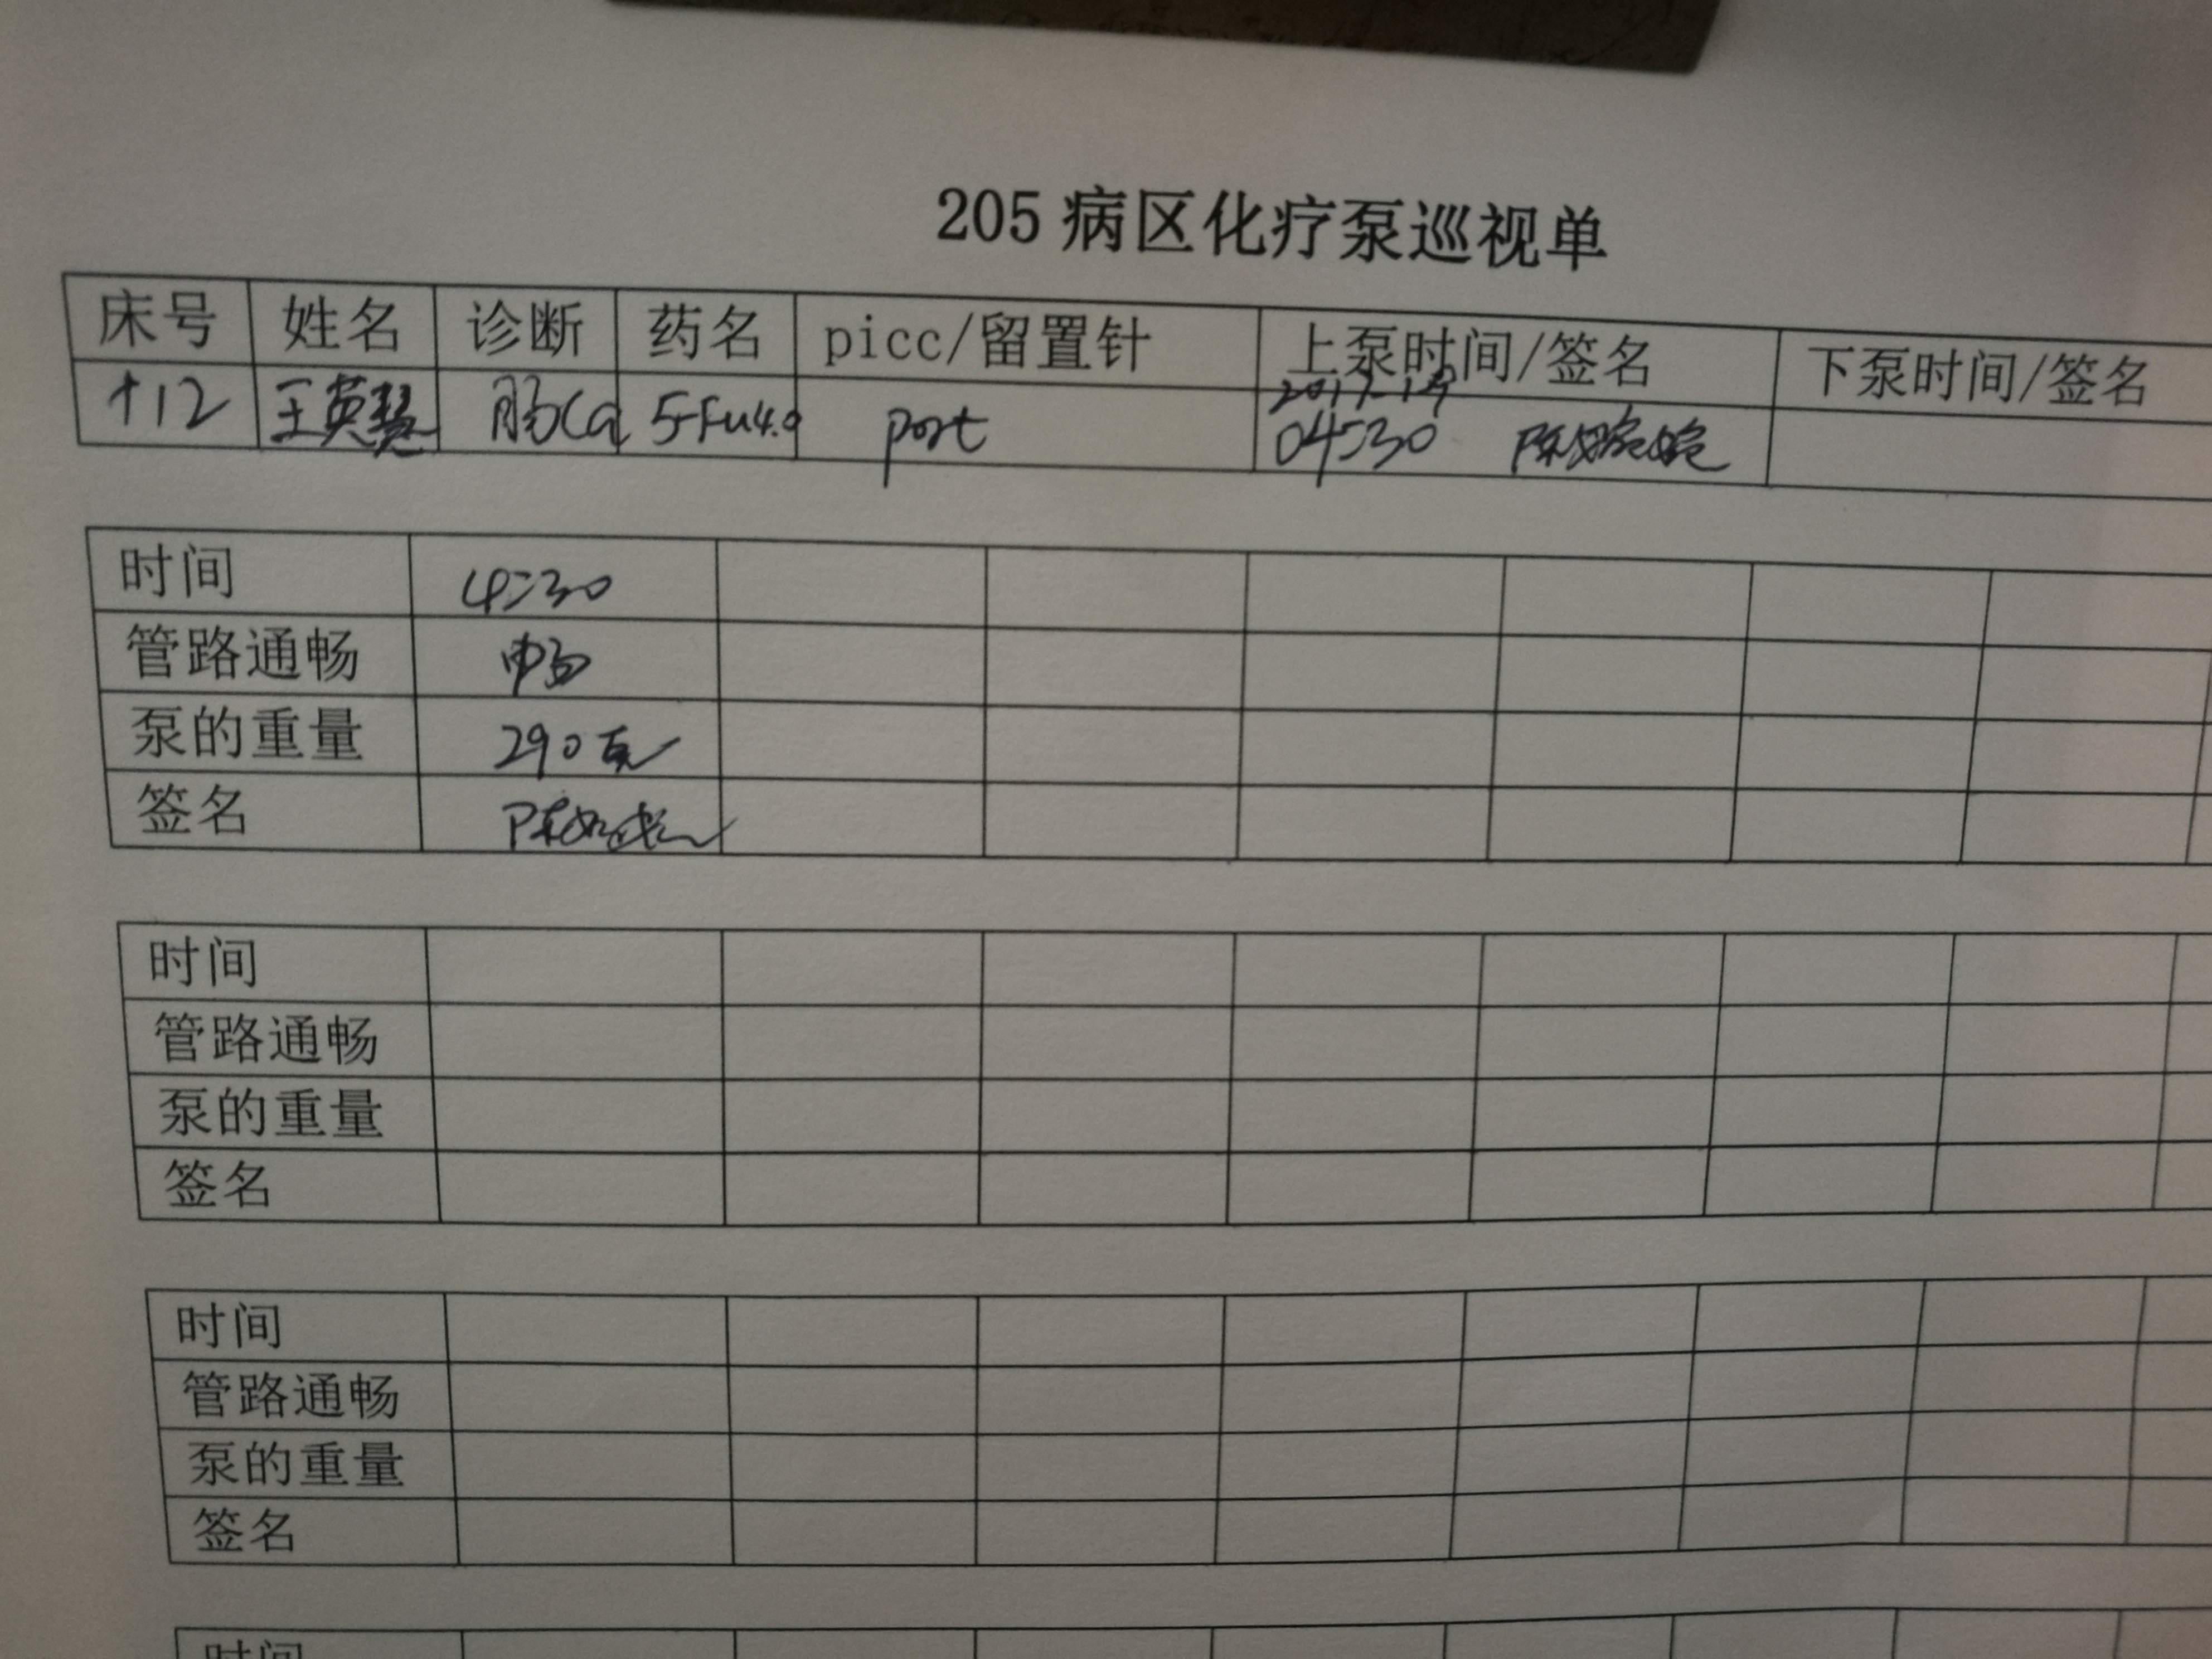 205 病区化疗泵巡视单
床号 姓名 诊断 药名 picc/留置针 上泵时间/签名 下泵时间/签名
+12 王英慧 肠Ca 5-Fu4.0 port 04:30
时间 4:30
管路通畅 畅
泵的重量 290克
签名
时间
管路通畅
泵的重量
签名
时间
管路通畅
泵的重量
签名
时间